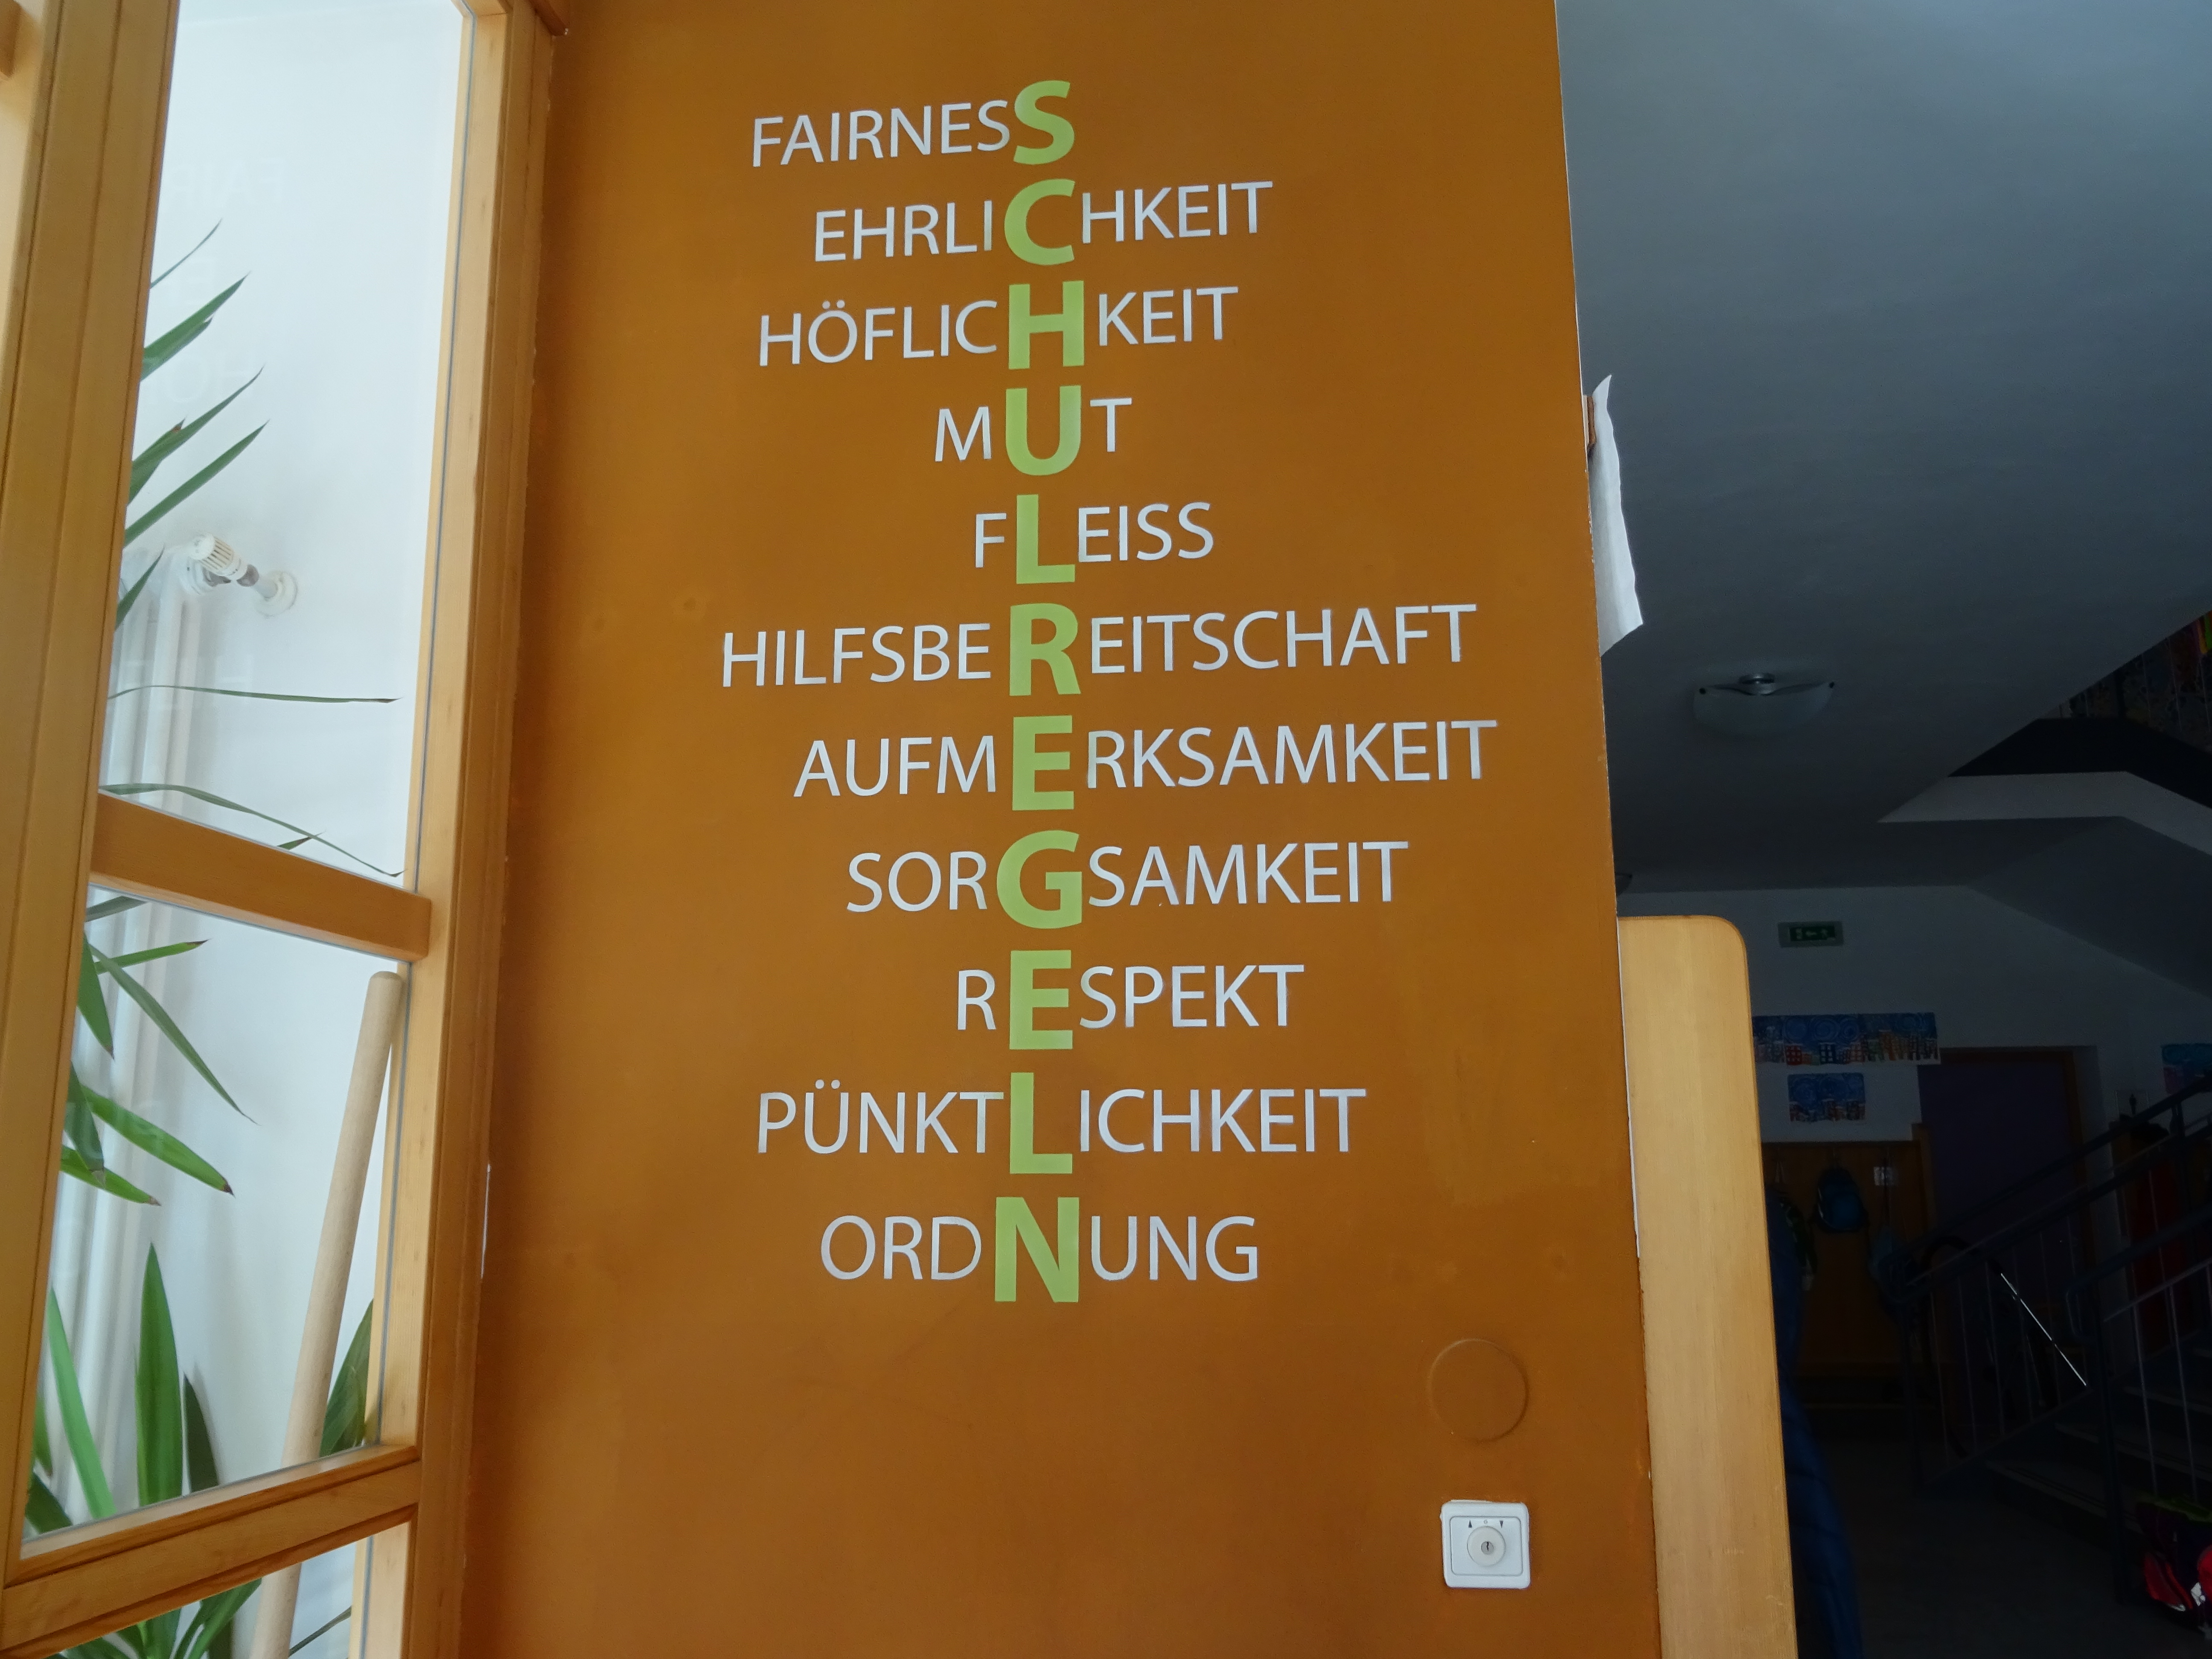 FAIRNESS
EHRLICHKEIT
HÖFLICHKEIT
MUT
FLEISS
HILFSBEREITSCHAFT
AUFMERKSAMKEIT
SORGSAMKEIT
RESPEKT
PÜNKTLICHKEIT
ORDNUNG